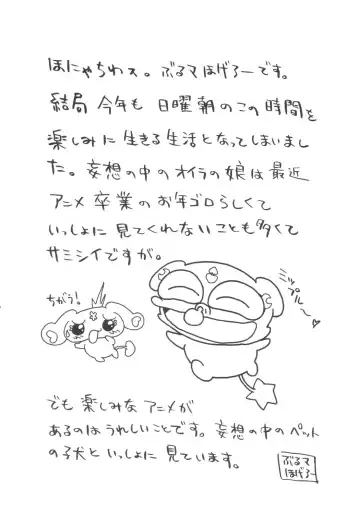 ほにゃちわス。ぶるマほげろーです。
結局 今年も 日曜朝のこの時間を
楽しみに 生きる生活となってしまいまし
た。妄想の中のオイラの娘は最近
アニメ卒業のお年ゴロらしくて
いっしょに見てくれないことも多くて
サミシイですが。
ちがう!
ミップルー♥
でも 楽しみな アニメが
あるのは うれしいことです。妄想の中のペット
の子犬といっしょに 見ています。
ぶるマ
ほげろー